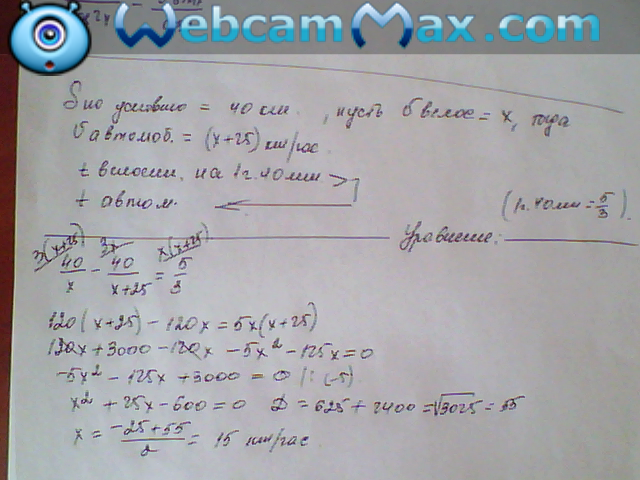 WebcamMax.com
S по условию = 40 км. , пусть V велос = x, тогда
V автомоб. = (x+25) км/час.
t велосип. на 1 г. 40 мин. >
t автом. (1 г. 40 мин = 5/3).
Уравнение:
3(x+25) 3x x(x+25)
40/x - 40/(x+25) = 5/3
120(x+25) - 120x = 5x(x+25)
120x + 3000 - 120x - 5x² - 125x = 0
-5x² - 125x + 3000 = 0 /: (-5)
x² + 25x - 600 = 0 D = 625 + 2400 = √3025 = 55
x = (-25 + 55)/2 = 15 км/час.